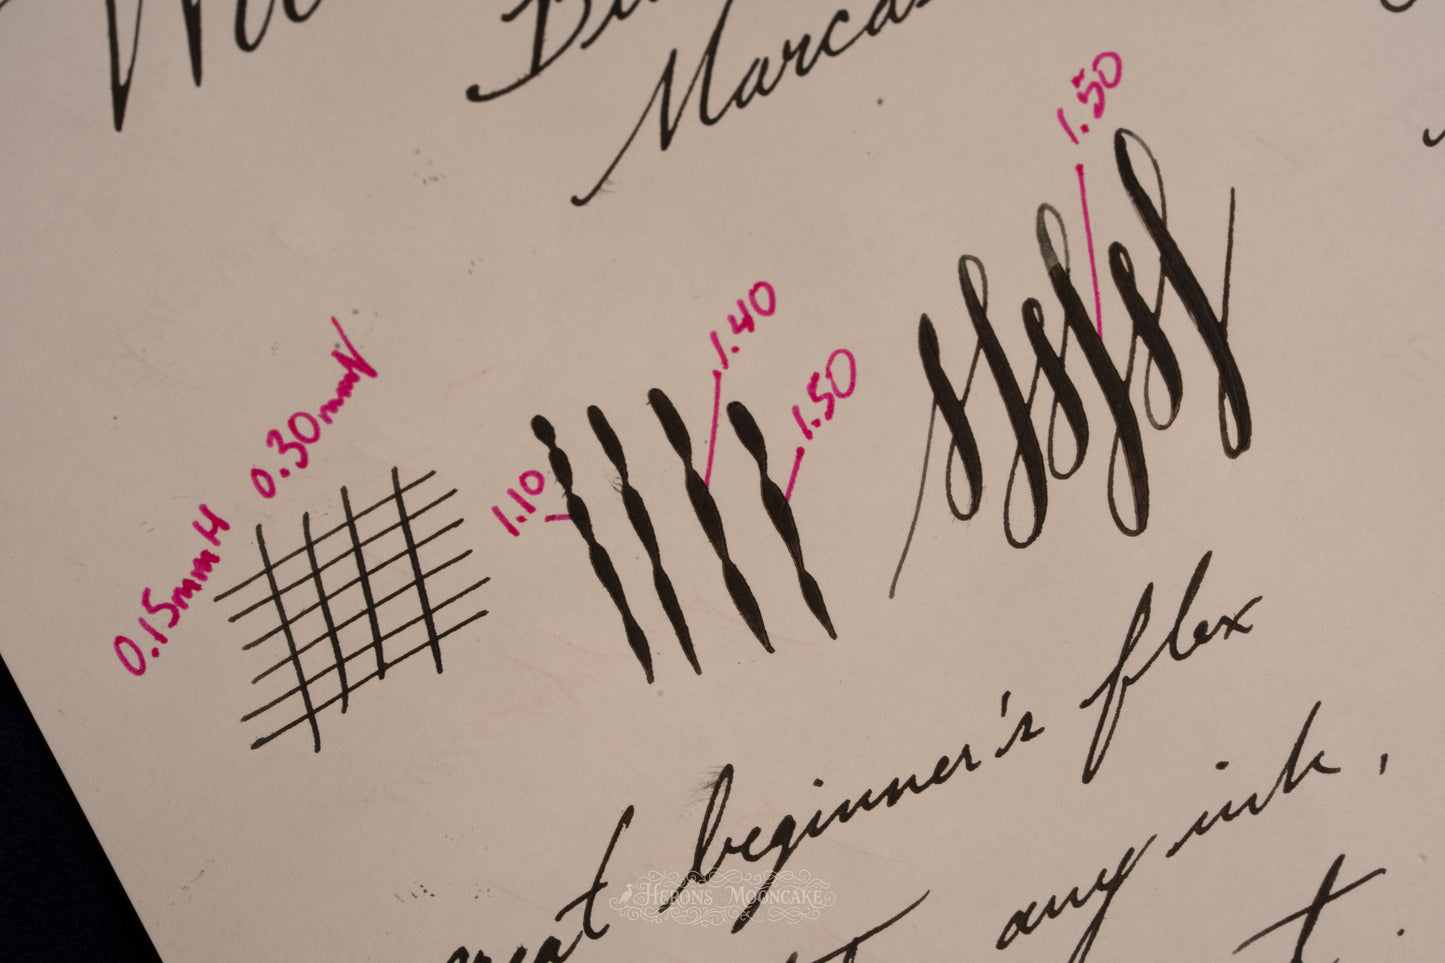 Marcas
1.50
1.40
1.50
1.10
0.30mmV
0.15mmH
great beginner's flex
any ink,
HERONS MOONCAKE